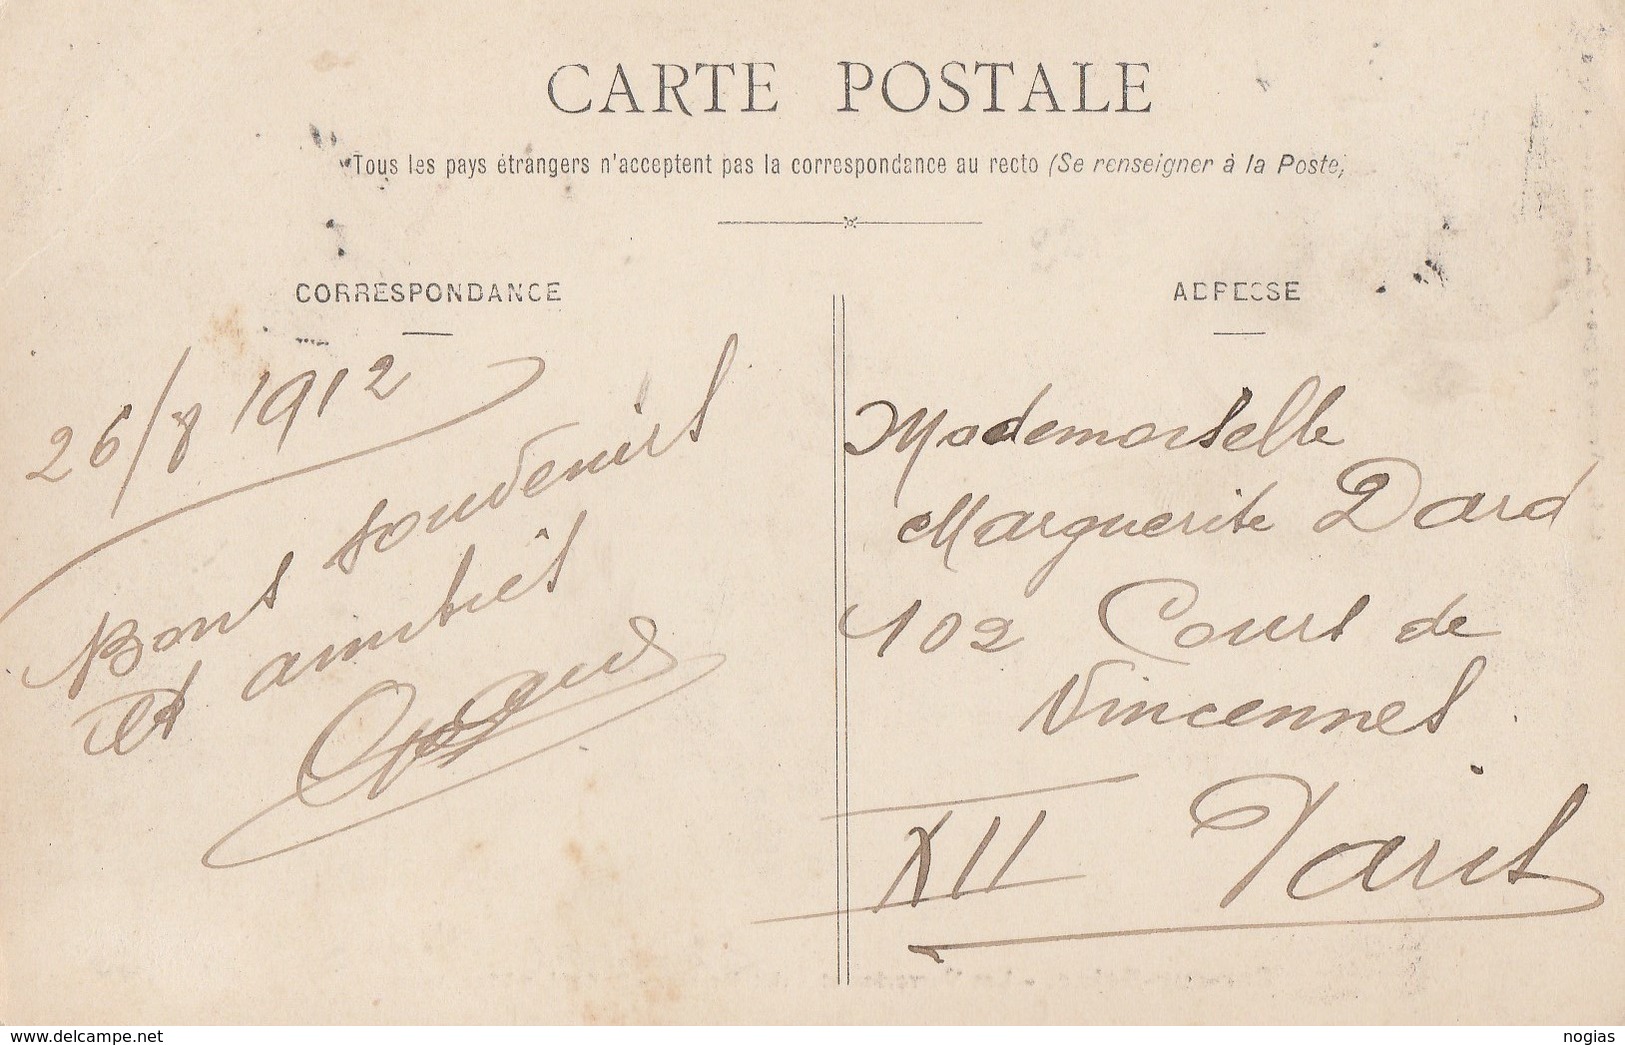 CARTE POSTALE
Tous les pays étrangers n'acceptent pas la correspondance au recto (Se renseigner à la Poste)
CORRESPONDANCE
26/8 1912
Bons souvenirs
et amitiés
ADRESSE
Mademoiselle
Marguerite Dard
102 Cours de
Vincennes
XII Paris
delcampe.net
nogias